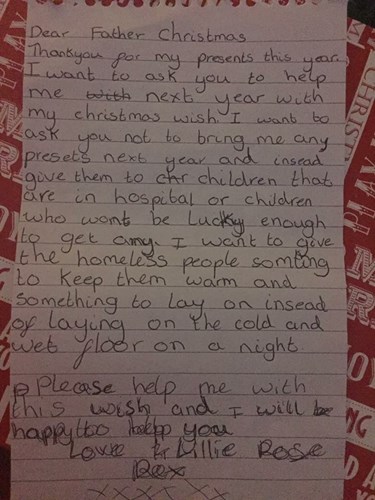 Dear Father Christmas
Thankyou for my presents this year
I want to ask you to help
me with next year with
my christmas wish I want to
ask you not to bring me any
presets next year and insead
give them to chr children that
are in hospital or children
who wont be Lucky enough
to get any. I want to give
the homeless people somting
to keep them warm and
something to lay on insead
of laying on the cold and
wet floor on a night.
Please help me with
this wish and I will be
happy to help you
Love Lillie Rose
xxxxx